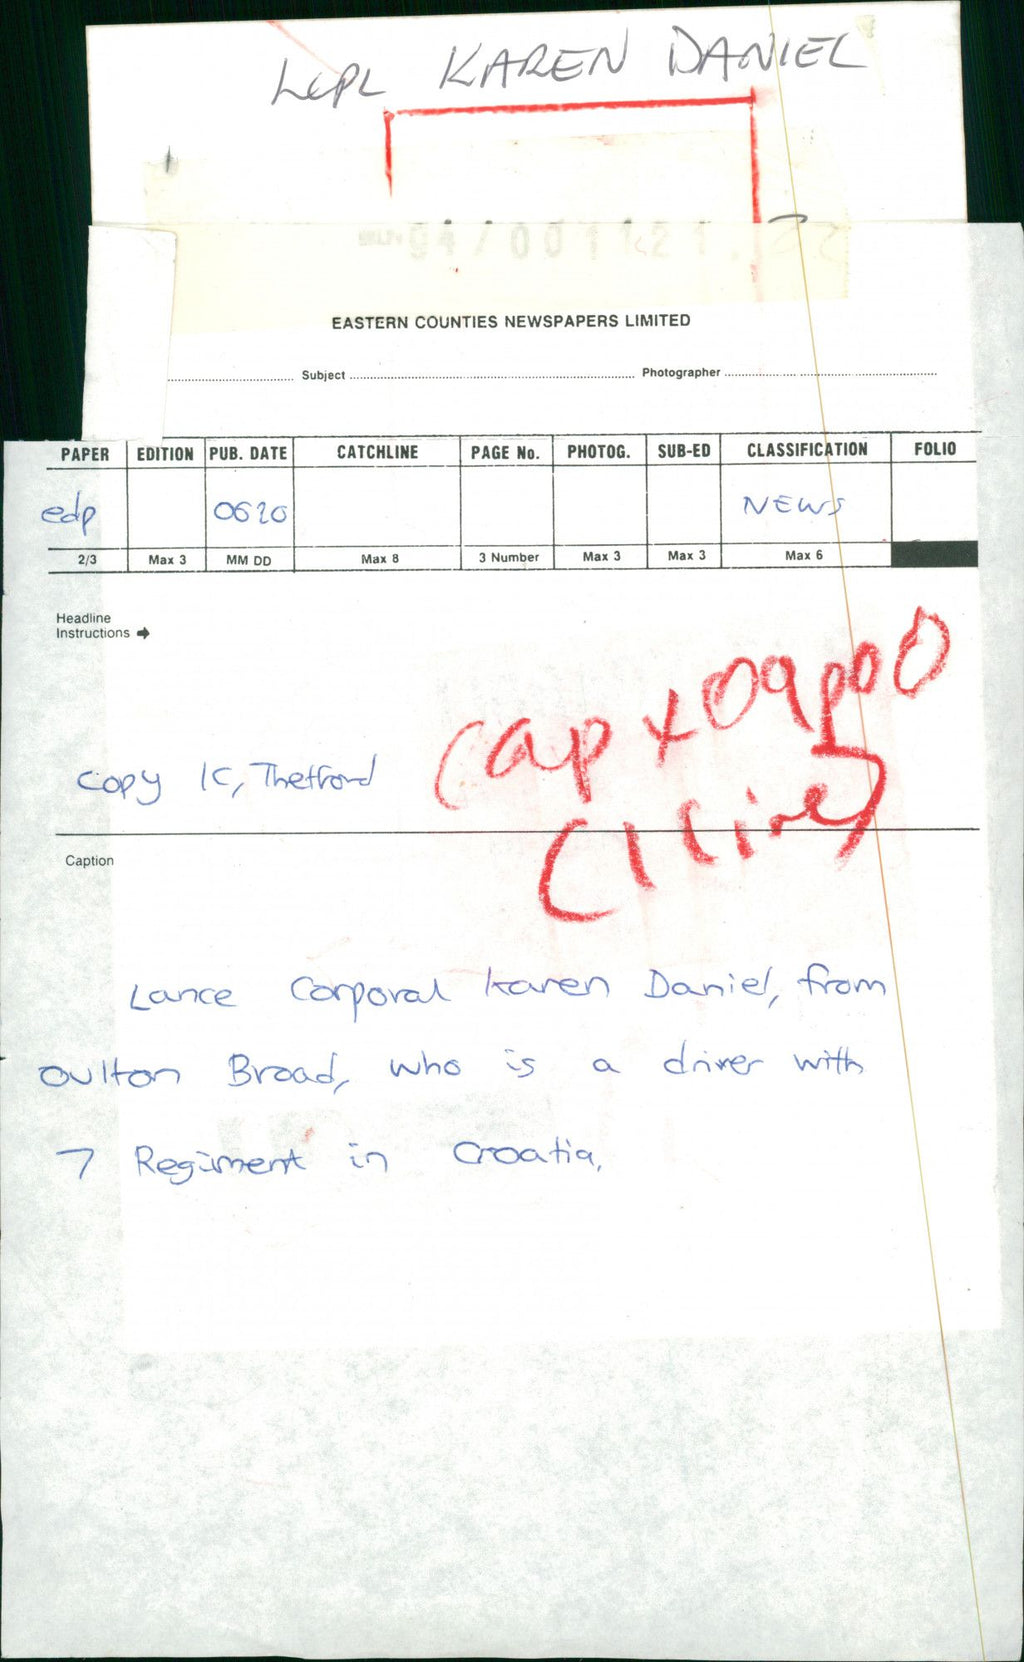 LCPL KAREN DANIEL
94/001121.22
EASTERN COUNTIES NEWSPAPERS LIMITED
Subject Photographer
PAPER EDITION PUB. DATE CATCHLINE PAGE No. PHOTOG. SUB-ED CLASSIFICATION FOLIO
edp 0620 NEWS
2/3 Max 3 MM DD Max 8 3 Number Max 3 Max 3 Max 6
Headline
Instructions
Copy IC, Thetford
Cap
(1 line)
Caption
Lance Corporal Karen Daniel, from
Oulton Broad, who is a driver with
7 Regiment in Croatia.